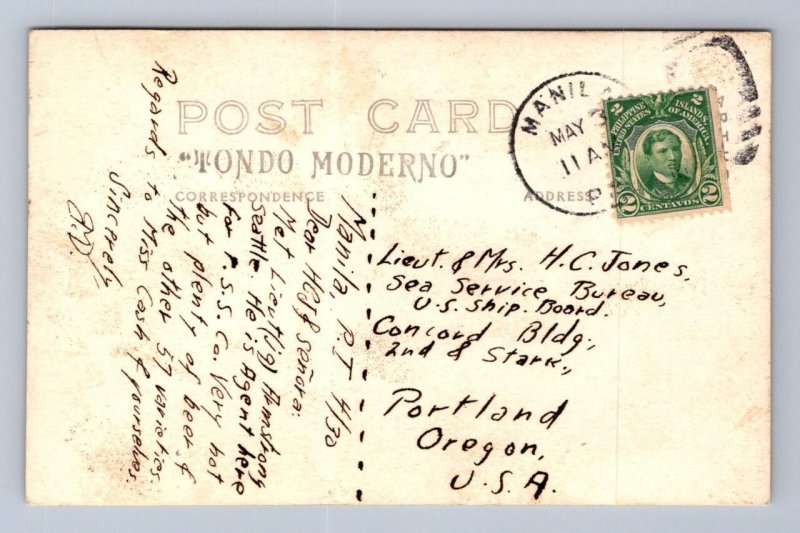 POST CARD
"TONDO MODERNO"
CORRESPONDENCE
ADDRESS
MANILA
MAY
11 A
P
PHILIPPINE ISLANDS
UNITED STATES OF AMERICA
2 2
2 CENTAVOS 2
Manila, P.I 4/30
Dear HCJ & señora:
Met Lieut(jg) Armstrong
Seattle. He is Agent here
for P.S.S. Co. Very hot
but plenty of beer &
the other 57 varieties.
Regards to Miss Cash & yourselves.
Sincerely
Lieut. & Mrs. H.C. Jones,
Sea Service Bureau,
U.S. Ship. Board.
Concord Bldg.,
2nd & Stark,
Portland
Oregon,
U.S.A.